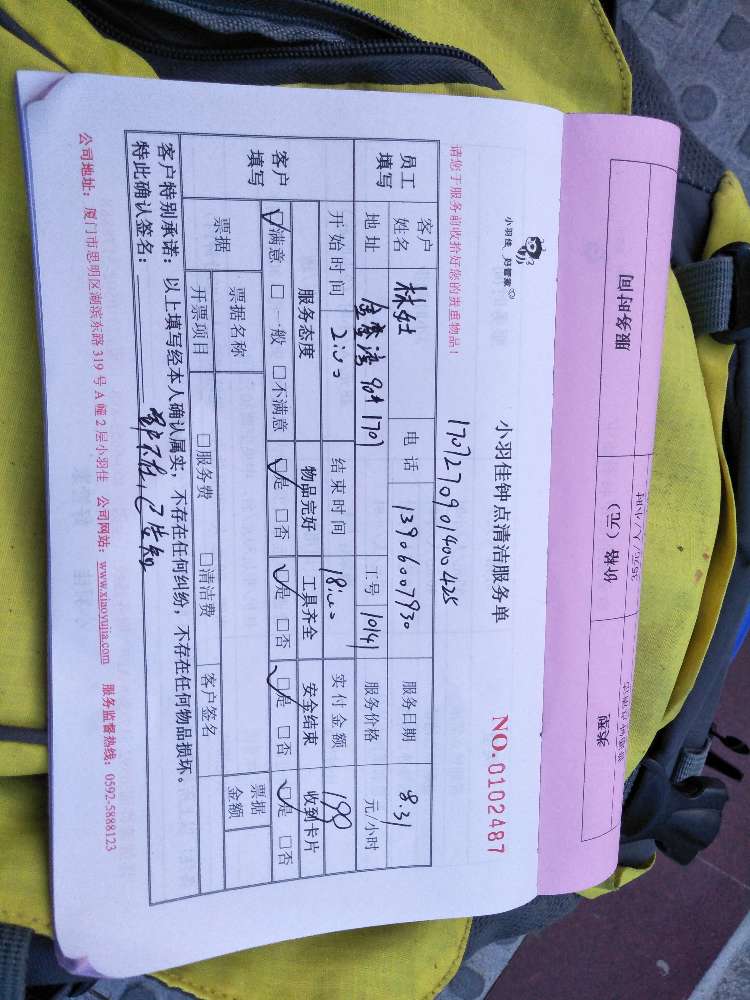 小羽佳 归管家
小羽佳钟点清洁服务单
NO.0102487
请您于服务前收拾好您的贵重物品!
170727090140042S
员工填写 客户姓名 电话 13906007930 服务日期 8.31
地址 金秀湾 90# 1707 工号 10141 服务价格 元/小时
开始时间 结束时间 18:00 实付金额 190
客户填写 服务态度 物品完好 工具齐全 安全结束 收到卡片
☑满意 □一般 □不满意 ☑是 □否 ☑是 □否 ☑是 □否 ☑是 □否
票据 票据名称 票据金额
开票项目 □服务费 □清洁费 客户签名
客户特别承诺:以上填写经本人确认属实,不存在任何纠纷,不存在任何物品损坏。
特此确认签名: 客户不在,已告知
公司地址:厦门市思明区湖滨东路 319 号 A 幢 2 层小羽佳 公司网站:www.xiaoyujia.com 服务监督热线:0592-5888123
服务时间
价格(元)
类别